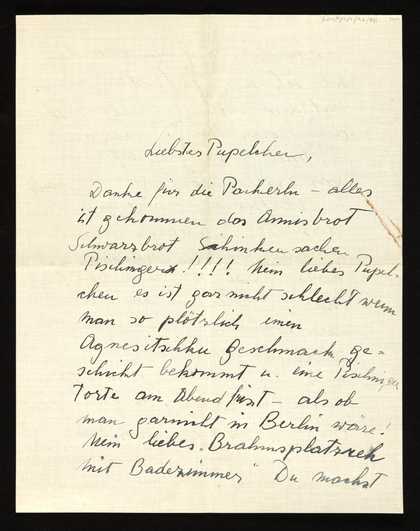 Liebstes Pupelchen,
Danke für die Packerln – alles
ist gekommen das Annisbrot
Schwarzbrot Schinken sachen
Pischinger !!!! Mein liebes Pupel-
chen es ist gar nicht schlecht wenn
man so plötzlich einen
Agnesitschku Geschmack ge-
schickt bekommt u. eine Pischinger
Torte am Abend frisst – als ob
man garnicht in Berlin wäre!
Mein liebes "Brahmsplatz
mit Badezimmer" Du machst